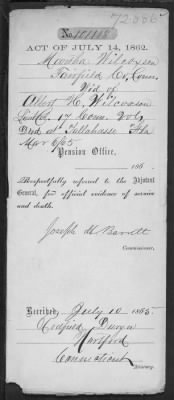 72.556
No. 101118
ACT OF JULY 14, 1862.
Martha Wilcoxson
Fairfield Co, Conn.
Wid of
Albert H. Wilcoxson
Lieut Col. 17 Conn. Vols
Died at Tallahasse Fla
Mar 6/65
Pension Office,
186
Respectfully referred to the Adjutant
General, for official evidence of service
and death.
Joseph H Barrett
Commissioner.
Received, July 10 1865.
Hartford
Connecticut
Attorney.